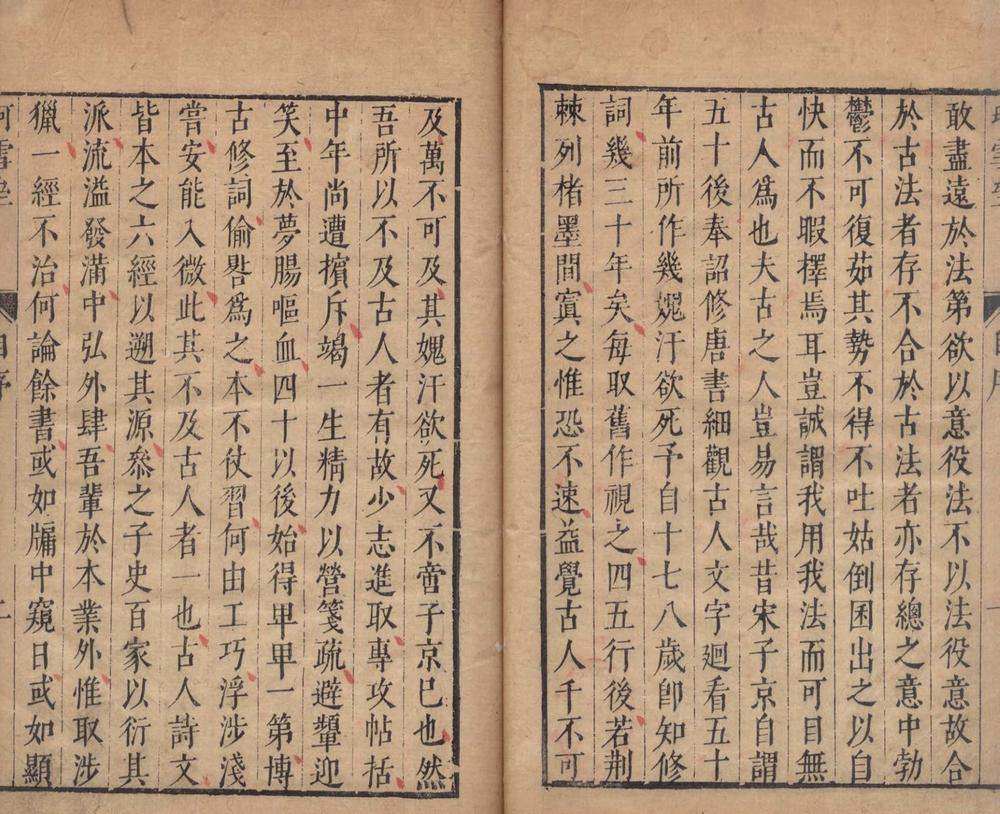 敢盡遠於法第欲以意役法不以法役意故合
於古法者存不合於古法者亦存總之意中勃
鬱不可復茹其勢不得不吐姑倒囷出之以自
快而不暇擇焉耳豈誠謂我用我法而可目無
古人爲也夫古之人豈易言哉昔宋子京自謂
五十後奉詔修唐書細觀古人文字廻看五十
年前所作幾媿汗欲死予自十七八歲卽知修
詞幾三十年矣每取舊作視之四五行後若荆
棘列楮墨間寘之惟恐不速益覺古人千不可
及萬不可及其媿汗欲死又不啻子京已也然
吾所以不及古人者有故少志進取專攻帖括
中年尚遭擯斥竭一生精力以營箋疏避顰迎
笑至於夢腸嘔血四十以後始得甲甲一第博
古修詞偷晷爲之本不仗習何由工巧浮涉淺
嘗安能入微此其不及古人者一也古人詩文
皆本之六經以遡其源叅之子史百家以衍其
派流溢發滿中弘外肆吾輩於本業外惟取涉
獵一經不治何論餘書或如牖中窺日或如顯
自序
二